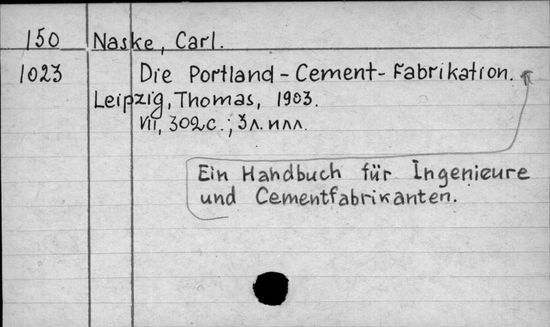 150 Naske, Carl.
1023 Die Portland-Cement-Fabrikation.
Leipzig, Thomas, 1903.
VII, 302с.; 3л. илл.
Ein Handbuch für Ingenieure
und Cementfabrikanten.